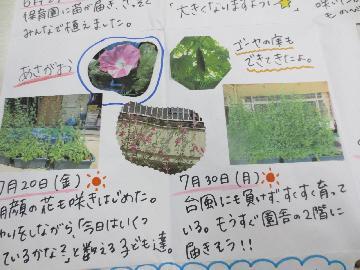 保育園に苗が届き、さっそく
みんなで植えました。
大きくなりますように
あさがお
ゴーヤの実も
できてきたよ。
7月20日(金)
朝顔の花も咲きはじめた。
をしながら、「今日はいくつ
ているかな?」と数える子ども達。
7月30日(月)
台風にも負けずすくすく育って
いる。もうすぐ園舎の2階に
届きそう!!